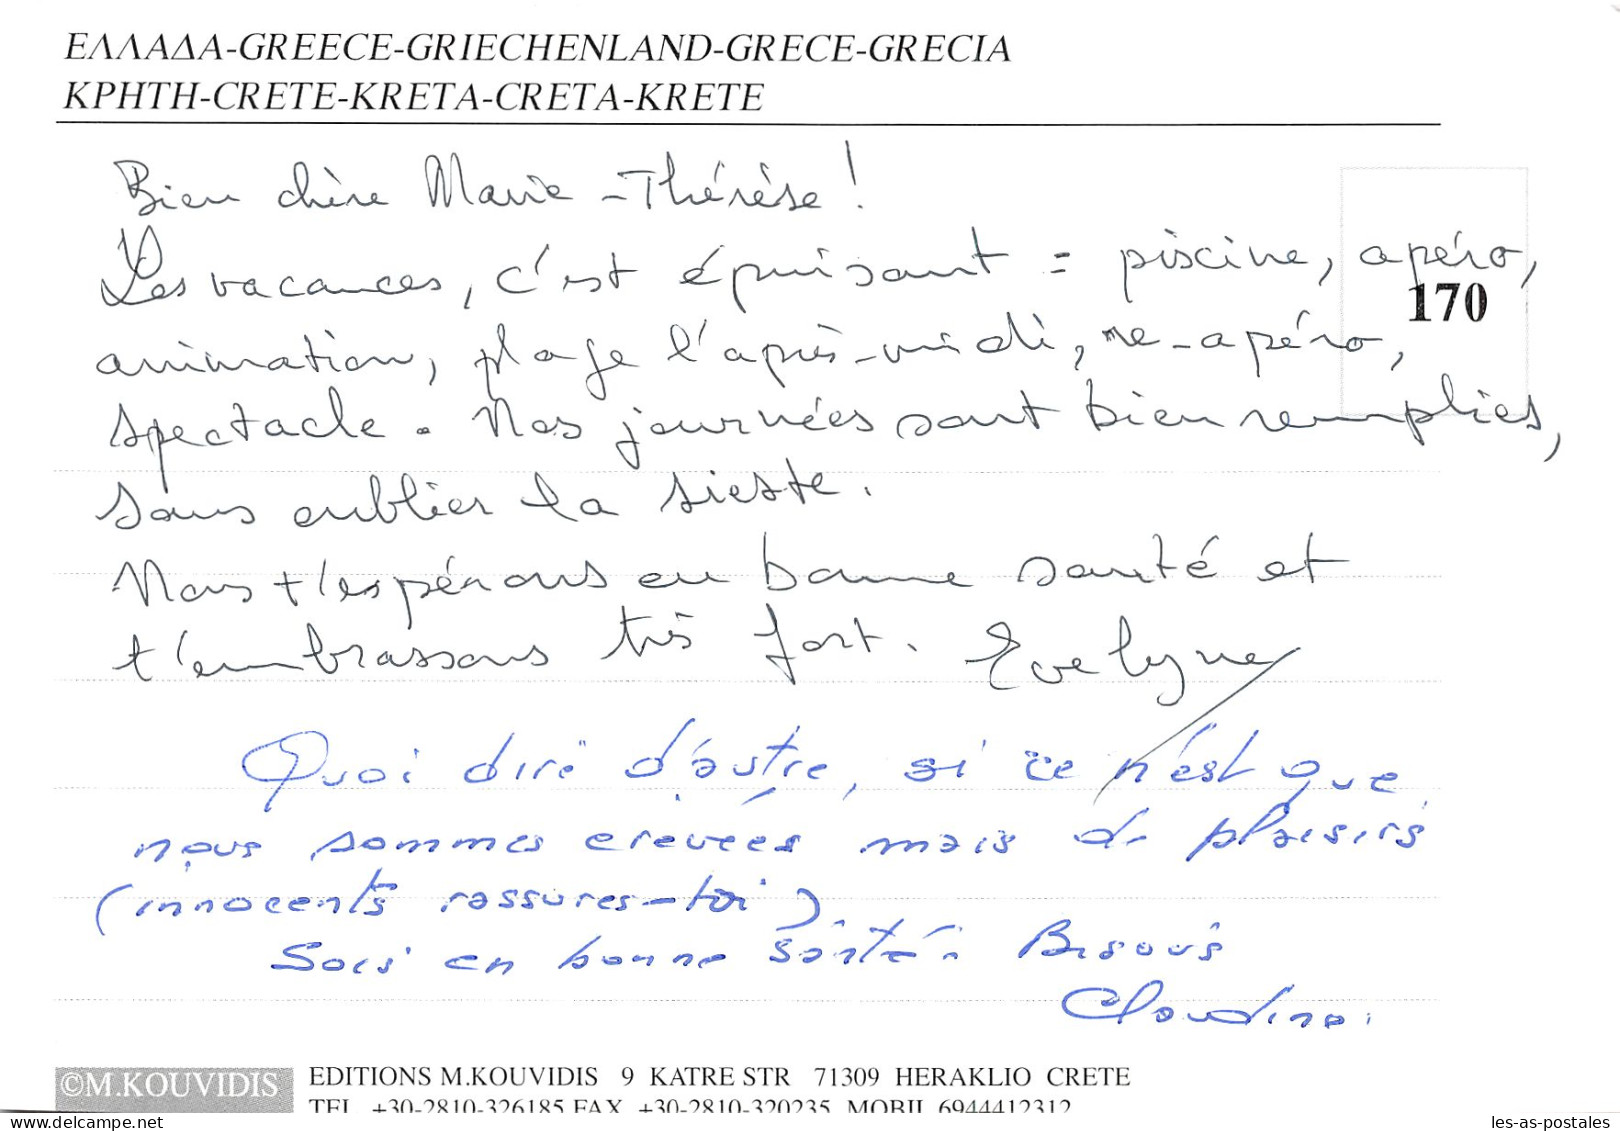 ΕΛΛΑΔΑ-GREECE-GRIECHENLAND-GRECE-GRECIA
ΚΡΗΤΗ-CRETE-KRETA-CRETA-KRETE
Bien chère Marie-Thérèse !
Les vacances, c'est épuisant : piscine, apéro,
170
animation, plage l'après-midi, re-apéro,
spectacle. Nos journées sont bien remplies,
sans oublier la sieste.
Nous t'espérons en bonne santé et
t'embrassons très fort. Evelyne
Quoi dire d'autre, si ce n'est que
nous sommes crevées mais de plaisirs
(innocents rassures-toi).
Sois en bonne santé. Bisous
Claudine.
©M.KOUVIDIS
EDITIONS M.KOUVIDIS 9 KATRE STR 71309 HERAKLIO CRETE
TEL +30-2810-326185 FAX +30-2810-320235 MOBIL 6944412312
delcampe.net
les-as-postales